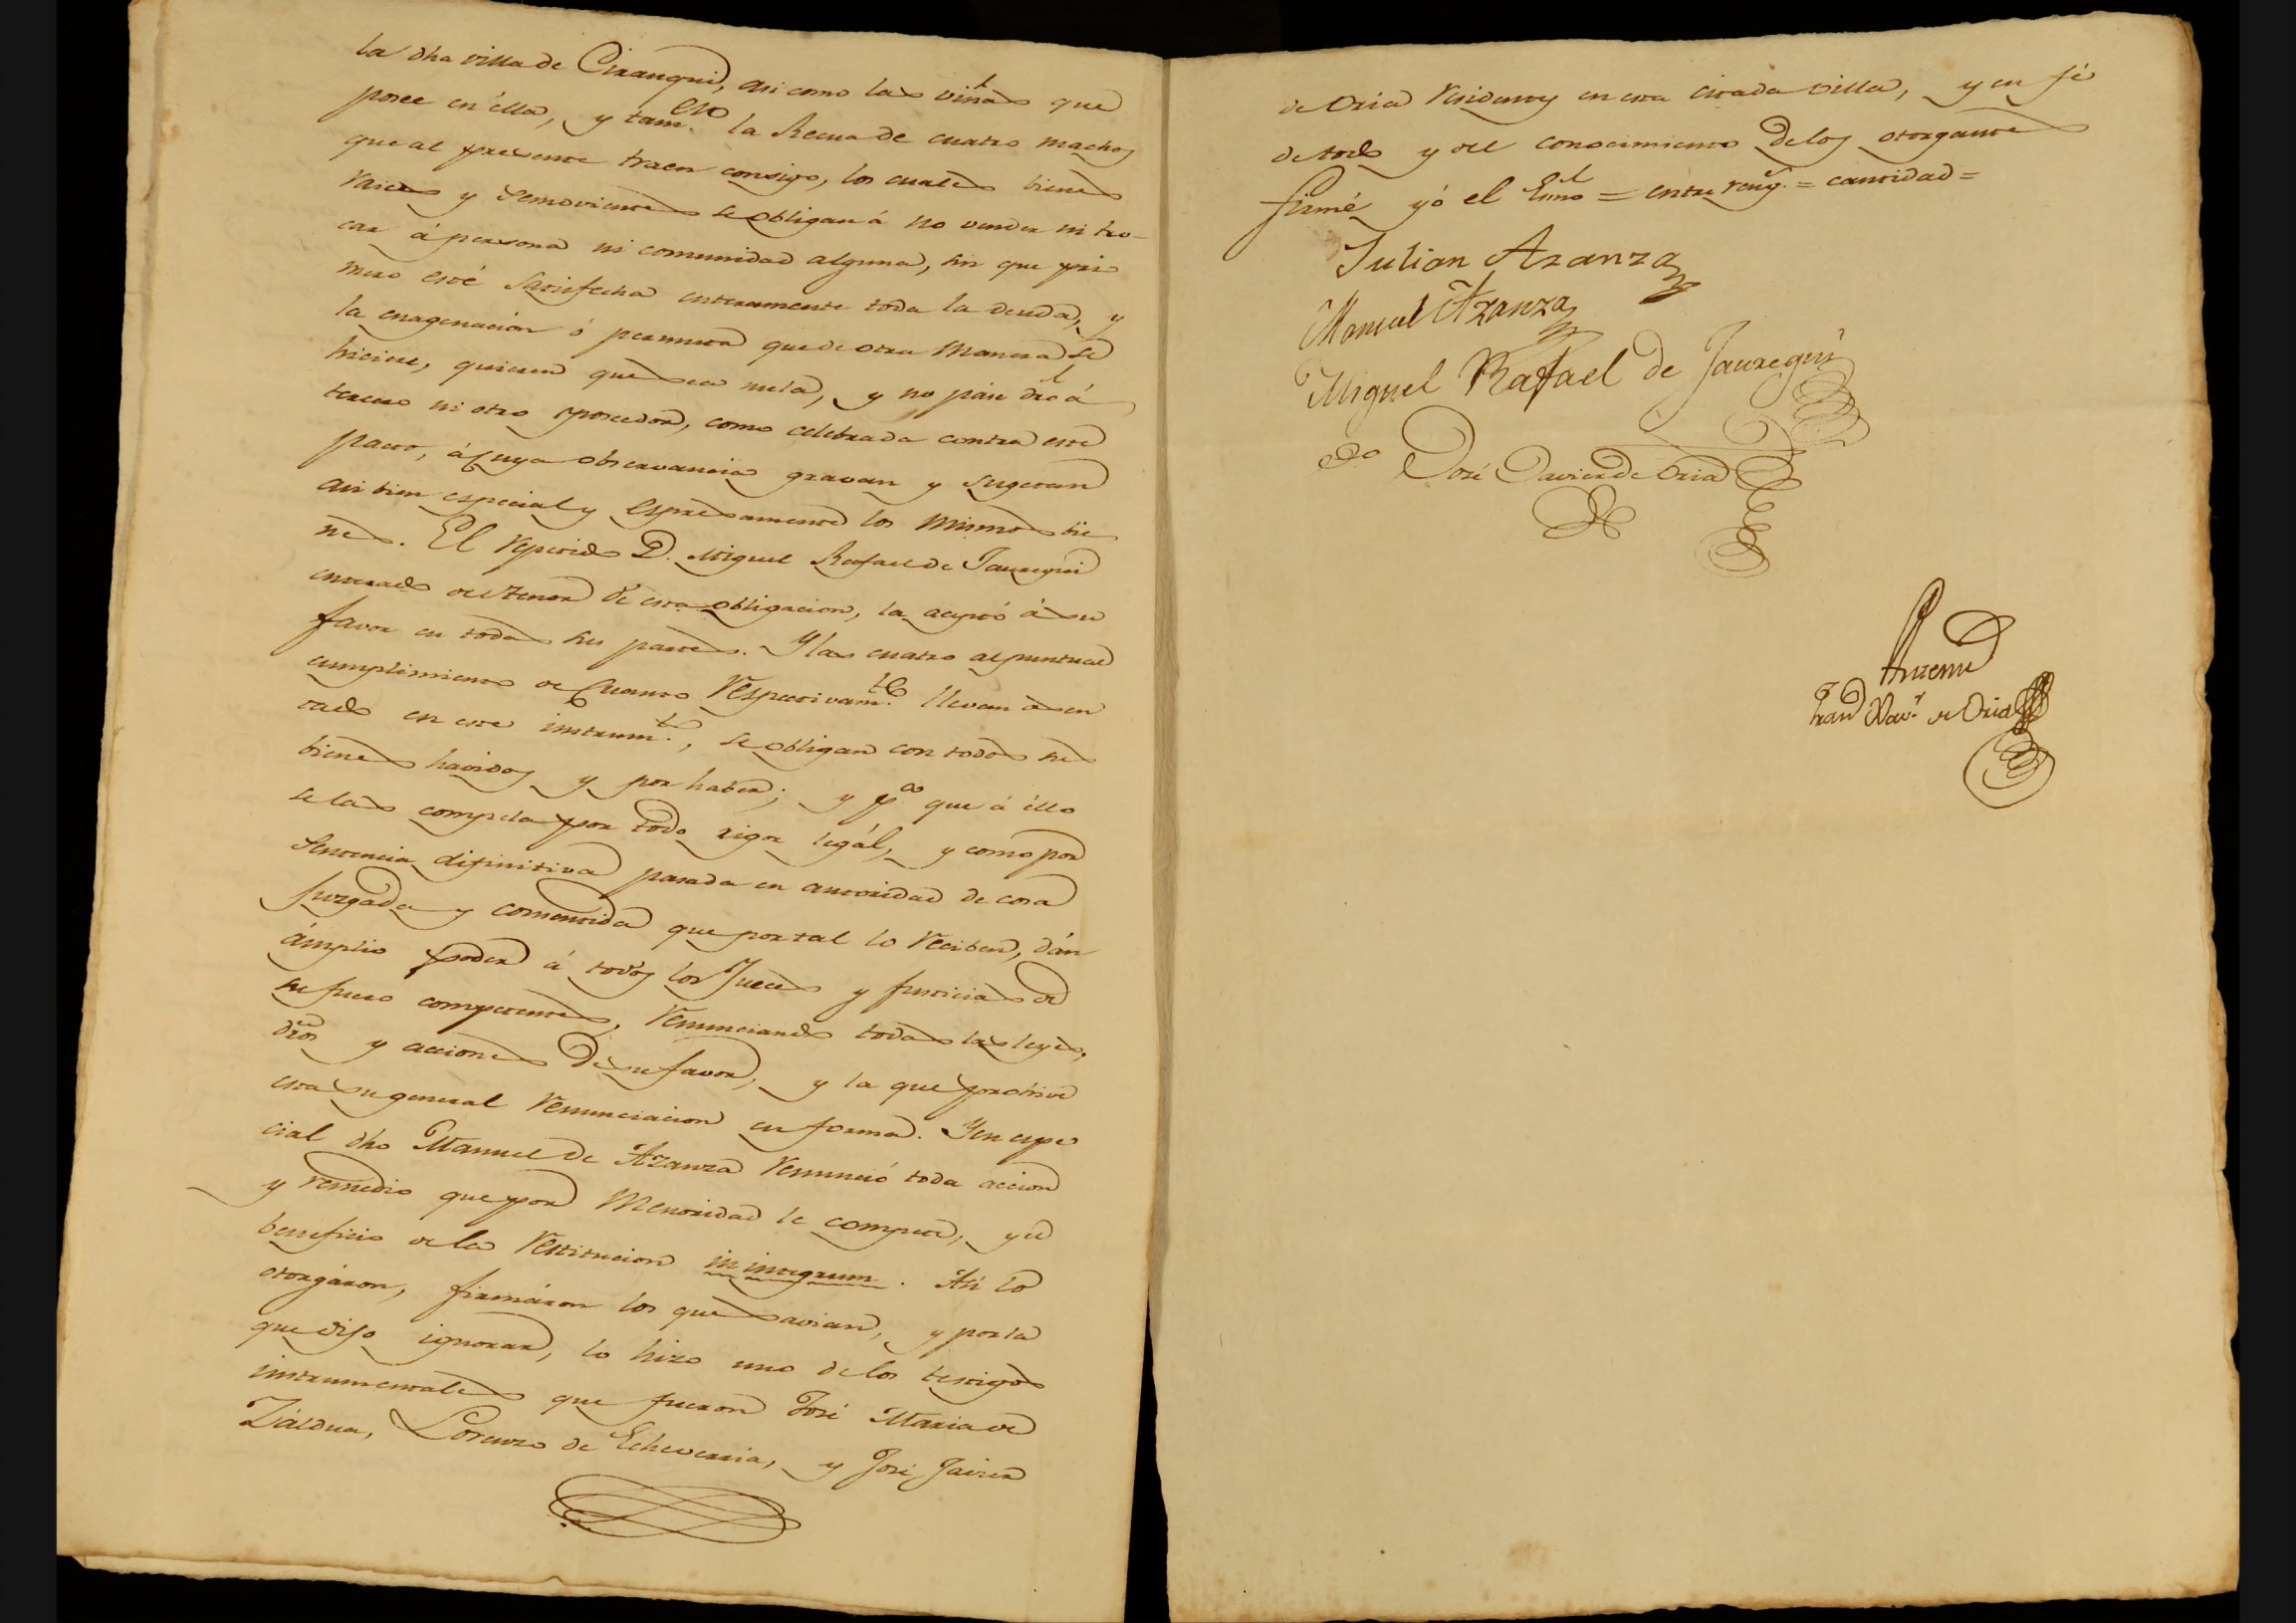 la dha villa de Cirauqui, asi como las viñas que
posee en élla, y tam.en la Recua de cuatro machos
que al presente traen consigo, los cuales bienes
raices y semovientes se obligan á no vender ni tro-
car á persona ni comunidad alguna, sin que pri
mero esté satisfecha enteramente toda la deuda, y
la enagenacion ó permuta que de otra manera se
hiciere, quieren que sea nula, y no pase dro á
tercero ni otro poseedor, como celebrada contra este
pacto, á cuya observancia gravan y sugetan
asi bien especial y espresamente los mismos bie
nes. El repetido D. Miguel Rafael de Jauregui
enterado del tenor de esta obligacion, la aceptó á su
favor en todas sus partes. Y las cuatro al puntual
cumplimiento de cuanto respectivam.te llevan sen
tado en este instrum.to, se obligan con todos sus
bienes havidos y por haber; y p.a que á éllo
se las compela por todo rigor legál, y como por
sentencia difinitiva pasada en autoridad de cosa
juzgada y consentida que por tal lo reciben, dán
ámplio poder á todos los Jueces y justicias de
su fuero competentes, renunciando todas las leyes,
dros y acciones de su favor, y la que prohive
esta su general renunciacion en forma. Y en espe
cial dho Manuel de Azanza renunció toda accion
y remedio que por menoridad le compete, y el
beneficio de la restitucion in integrum. Asi lo
otorgáron, firmáron los que savian, y por la
que dijo ignorar, lo hizo uno de los testigos
instrumentales que fueron José Maria de
Zaldua, Lorenzo de Echeverria, y José Javier
de Oria residentes en esta citada villa, y en fé
de todo y del conocimiento de los otorgantes
firmé yó el Esno = entre reng.s = cantidad =
Julian Azanza
Manuel Azanza
Miguel Rafael de Jauregui
José Javier de Oria
Antemi
Fran.co Xav.r de Oria